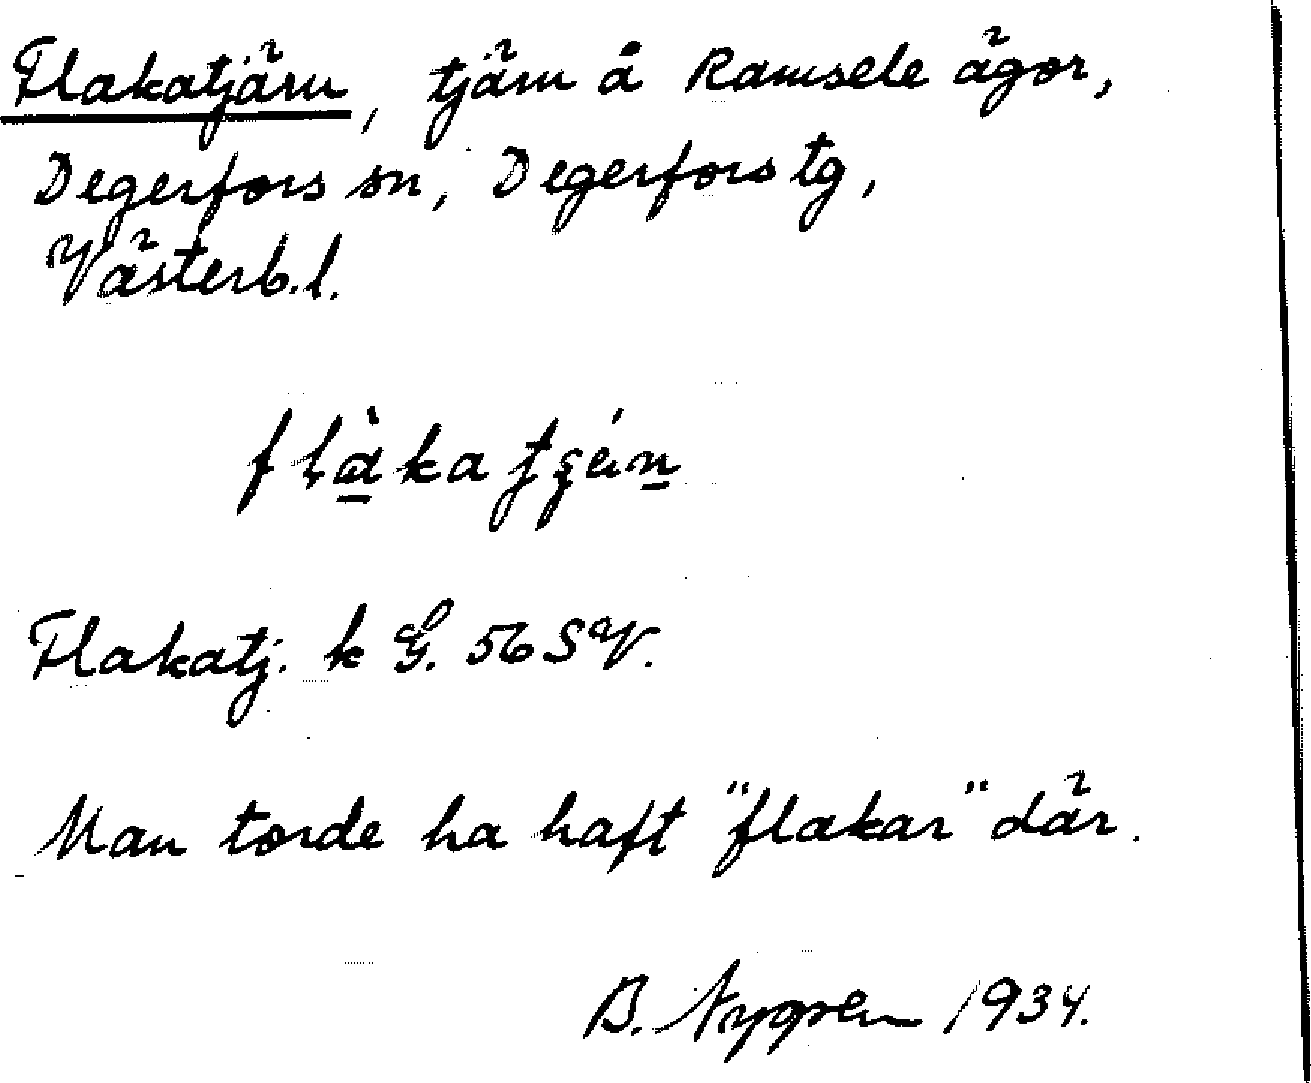 Flakatjärn, tjärn å Ramsele ägor,
Degerfors sn, Degerfors tg,
Västerb.l.
Flakatj. k G. 56 SV.
Man torde ha haft "flakar" där.
B. Nygren 1934.